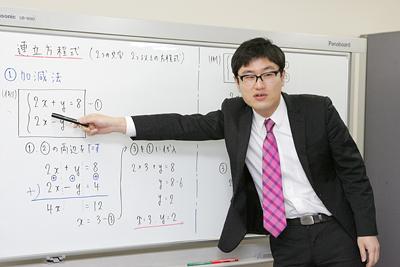 Panasonic UB-8000
Panaboard
連立方程式 (2つの文字 2つ以上の方程式)
① 加減法
(例1)
2x + y = 8 -①
2x - y
①, ②の両辺を
2x + y = 8
+) 2x - y = 4
4x = 12
x = 3 -③
③を①に代入
2×3 + y = 8
y = 8-6
y = 2
x=3, y=2